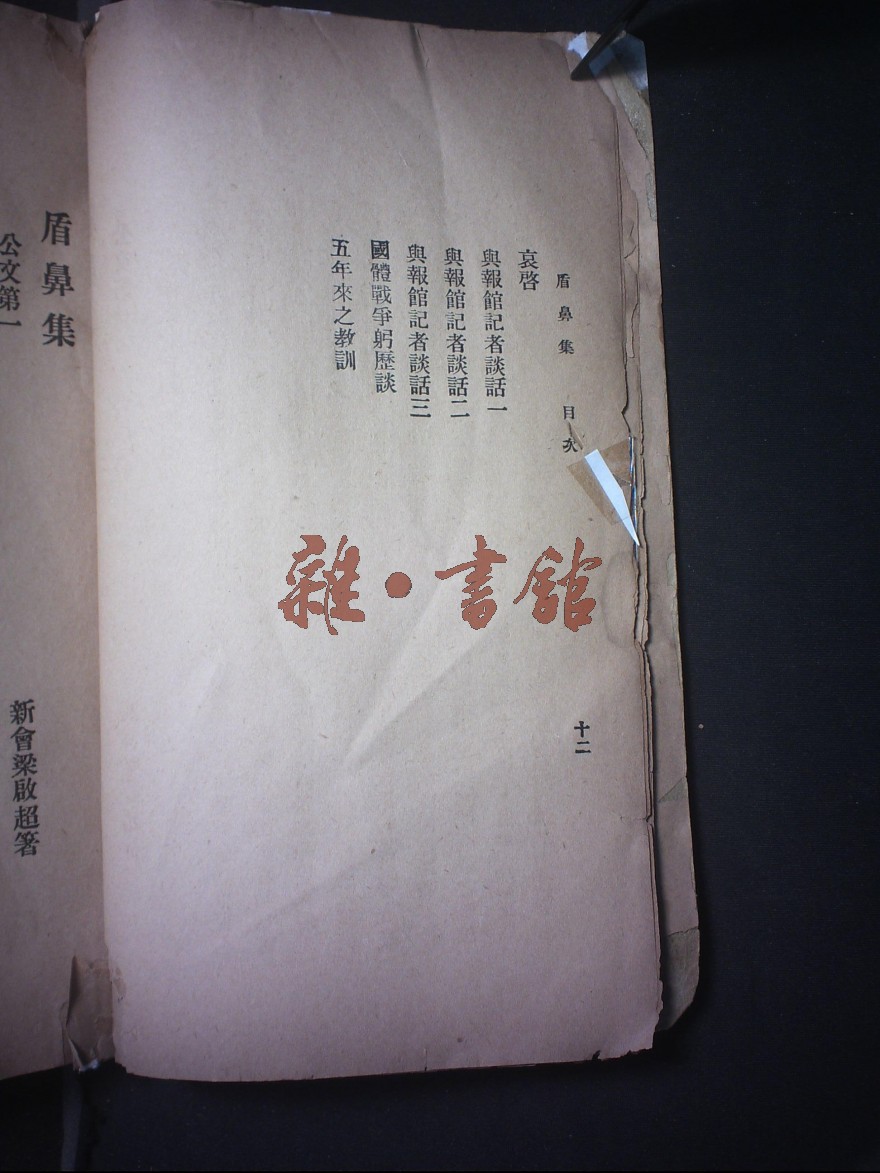 盾鼻集 目次
哀啓
與報館記者談話一
與報館記者談話二
與報館記者談話三
國體戰爭躬歷談
五年來之教訓
十二
雜·書館
盾鼻集
公文第一
新會梁啟超箸